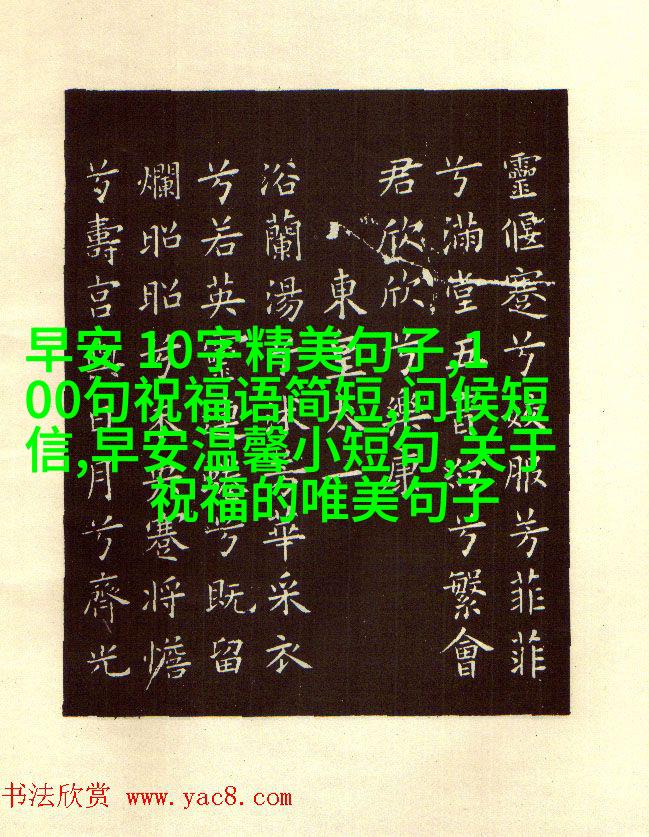 靈偃蹇兮姣服芳菲菲
兮滿堂五音紛兮繁會
君欣欣兮樂康
東皇太一
浴蘭湯兮沐芳華采衣
兮若英靈連蜷兮既留
爛昭昭兮未央蹇將憺
兮壽宮與日月兮齊光
早安 10字精美句子,1
00句祝福语简短,问候短
信,早安温馨小短句,关于
祝福的唯美句子
书法欣赏 www.yac8.com